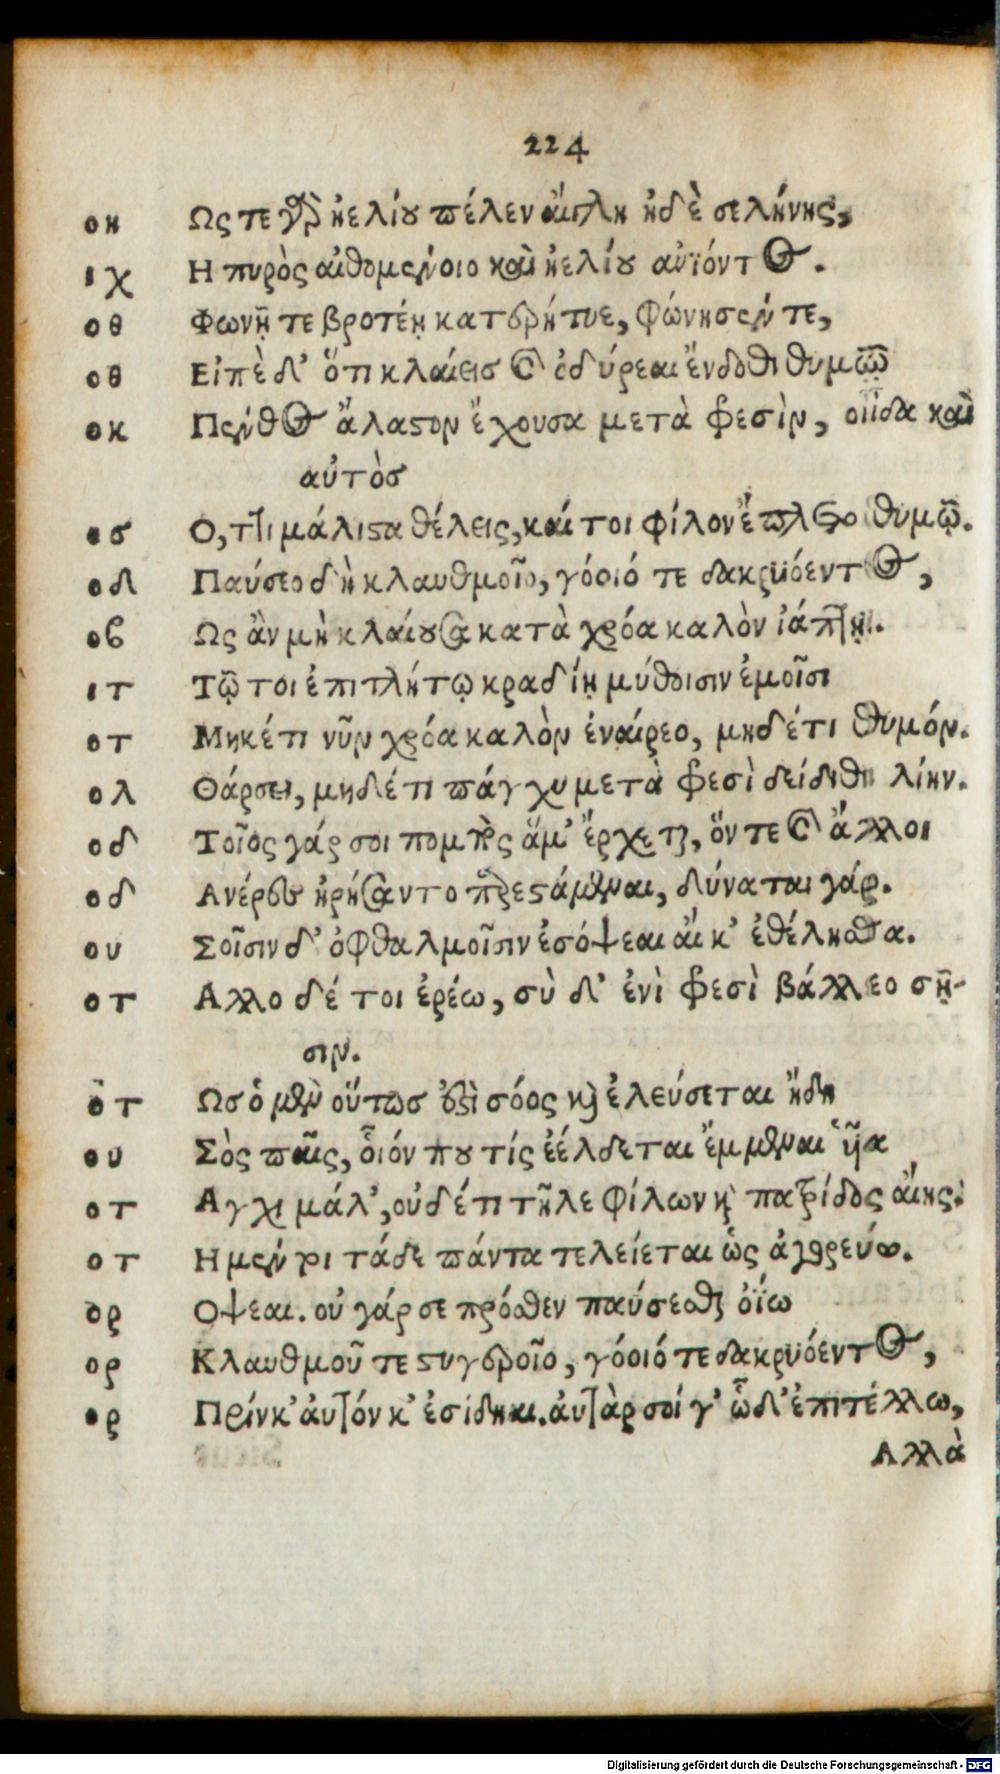 224
οη Ως τε γὰρ ἠελίου πέλεν αἴγλη ἠδὲ σελήνης,
ιχ Η πυρὸς αἰθομένοιο καὶ ἠελίου αὐϊόντος.
οθ Φωνῇ τε βροτέῃ κατερήτυε, φώνησέν τε,
οθ Εἰπὲ δ' ὅτι κλαίεισ καὶ ὀδύρεαι ἔνδοθι θυμῷ
οκ Πένθος ἄλαστον ἔχουσα μετὰ φρεσὶν, οἶδα καὶ
αὐτὸσ
οσ Ο,τι μάλιστα θέλεις, καί τοι φίλον ἔπλετο θυμῷ.
οδ Παύσεο δὴ κλαυθμοῖο, γόοιό τε δακρυόεντος,
οβ Ως ἂν μὴ κλαίουσα κατὰ χρόα καλὸν ἰάπτῃ.
ιτ Τῷ τοι ἐπιτλήτῳ κραδίῃ μύθοισιν ἐμοῖσι
οτ Μηκέτι νῦν χρόα καλὸν ἐναίρεο, μηδέτι θυμόν.
ολ Θάρσει, μηδέτι πάγχυ μετὰ φρεσὶ δείδιθι λίην.
οδ Τοῖος γάρ σοι πομπὸς ἅμ' ἔρχεται, ὅν τε καὶ ἄλλοι
οδ Ανέρες ἠρήσαντο παρεστάμεναι, δύναται γάρ.
ου Σοῖσιν δ' ὀφθαλμοῖσιν ἐσόψεαι αἴ κ' ἐθέλησθα.
οτ Αλλο δέ τοι ἐρέω, σὺ δ' ἐνὶ φρεσὶ βάλλεο σῇ-
σιν.
ὁτ Ωσ ὁ μὲν οὕτωσ ἐστὶ σόος καὶ ἐλεύσεται ἤδη
ου Σὸς παῖς, οἷόν που τίς ἐέλδεται ἔμμεναι ἧα
οτ Αγχι μάλ', οὐδέτι τῆλε φίλων καὶ πατρίδος αἴης.
οτ Η μέν τοι τάδε πάντα τελείεται ὡς ἀγορεύω.
ὁρ Οψεαι. οὐ γάρ σε πρόσθεν παύσεσθαι ὀΐω
ορ Κλαυθμοῦ τε στυγεροῖο, γόοιό τε δακρυόεντος,
ορ Πρίν κ' αὐτόν κ' ἐσίδηαι. αὐτὰρ σοί γ' ὧδ' ἐπιτέλλω,
Αλλὰ
Digitalisierung gefördert durch die Deutsche Forschungsgemeinschaft - DFG